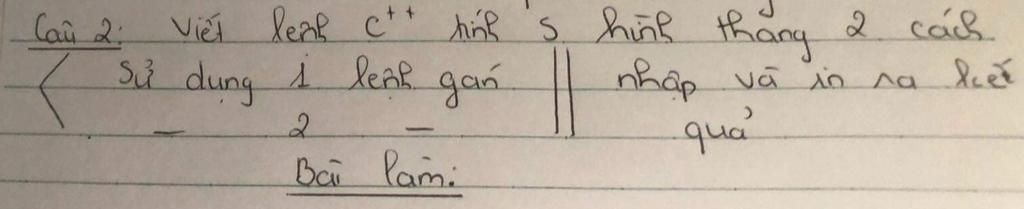 Câu 2: Viết lệnh C++ tính S hình thang 2 cách
< Sử dụng 1 lệnh gán || nhập và in ra kết
— 2 — quả
Bài làm: